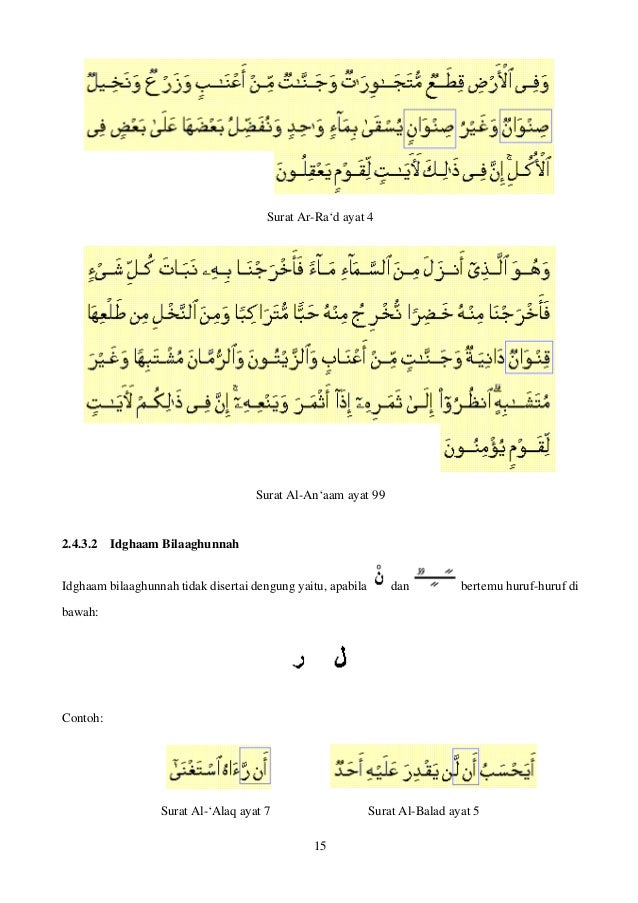 وَفِى ٱلْأَرْضِ قِطَعٌ مُّتَجَـٰوِرَٰتٌ وَجَنَّـٰتٌ مِّنْ أَعْنَـٰبٍ وَزَرْعٌ وَنَخِيلٌ
صِنْوَانٌ وَغَيْرُ صِنْوَانٍ يُسْقَىٰ بِمَآءٍ وَٰحِدٍ وَنُفَضِّلُ بَعْضَهَا عَلَىٰ بَعْضٍ فِى
ٱلْأُكُلِ ۚ إِنَّ فِى ذَٰلِكَ لَـَٔايَـٰتٍ لِّقَوْمٍ يَعْقِلُونَ
Surat Ar-Ra‘d ayat 4
وَهُوَ ٱلَّذِىٓ أَنزَلَ مِنَ ٱلسَّمَآءِ مَآءً فَأَخْرَجْنَا بِهِۦ نَبَاتَ كُلِّ شَىْءٍ
فَأَخْرَجْنَا مِنْهُ خَضِرًا نُّخْرِجُ مِنْهُ حَبًّا مُّتَرَاكِبًا وَمِنَ ٱلنَّخْلِ مِن طَلْعِهَا
قِنْوَانٌ دَانِيَةٌ وَجَنَّـٰتٍ مِّنْ أَعْنَابٍ وَٱلزَّيْتُونَ وَٱلرُّمَّانَ مُشْتَبِهًا وَغَيْرَ
مُتَشَـٰبِهٍ ۗ ٱنظُرُوٓا۟ إِلَىٰ ثَمَرِهِۦٓ إِذَآ أَثْمَرَ وَيَنْعِهِۦٓ ۚ إِنَّ فِى ذَٰلِكُمْ لَـَٔايَـٰتٍ
لِّقَوْمٍ يُؤْمِنُونَ
Surat Al-An‘aam ayat 99
2.4.3.2 Idghaam Bilaaghunnah
Idghaam bilaaghunnah tidak disertai dengung yaitu, apabila نْ dan ـًـٍـٌ bertemu huruf-huruf di
bawah:
ل ر
Contoh:
أَيَحْسَبُ أَن لَّن يَقْدِرَ عَلَيْهِ أَحَدٌ أَن رَّءَاهُ ٱسْتَغْنَىٰٓ
Surat Al-‘Alaq ayat 7 Surat Al-Balad ayat 5
15